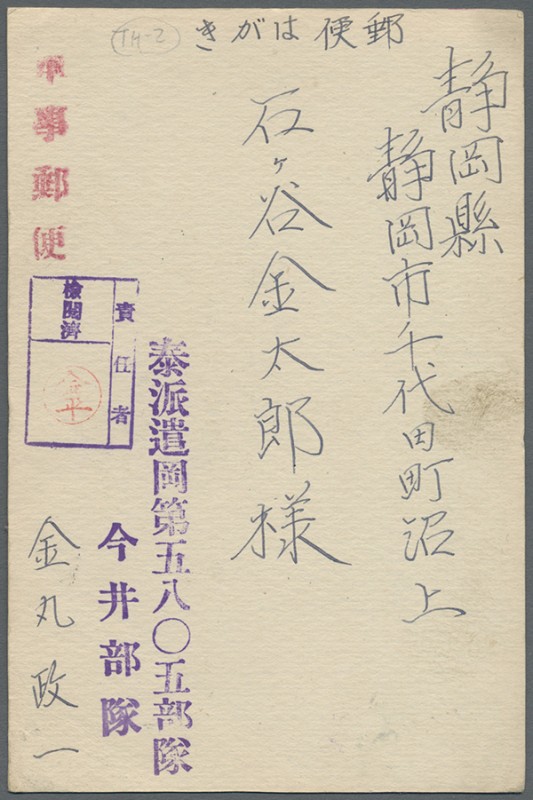 郵便はがき
TH-2
静岡縣
静岡市千代田町沼上
石ヶ谷金太郎様
軍事郵便
責任者
検閲濟
泰派遣岡第五八〇五部隊
今井部隊
金丸政一